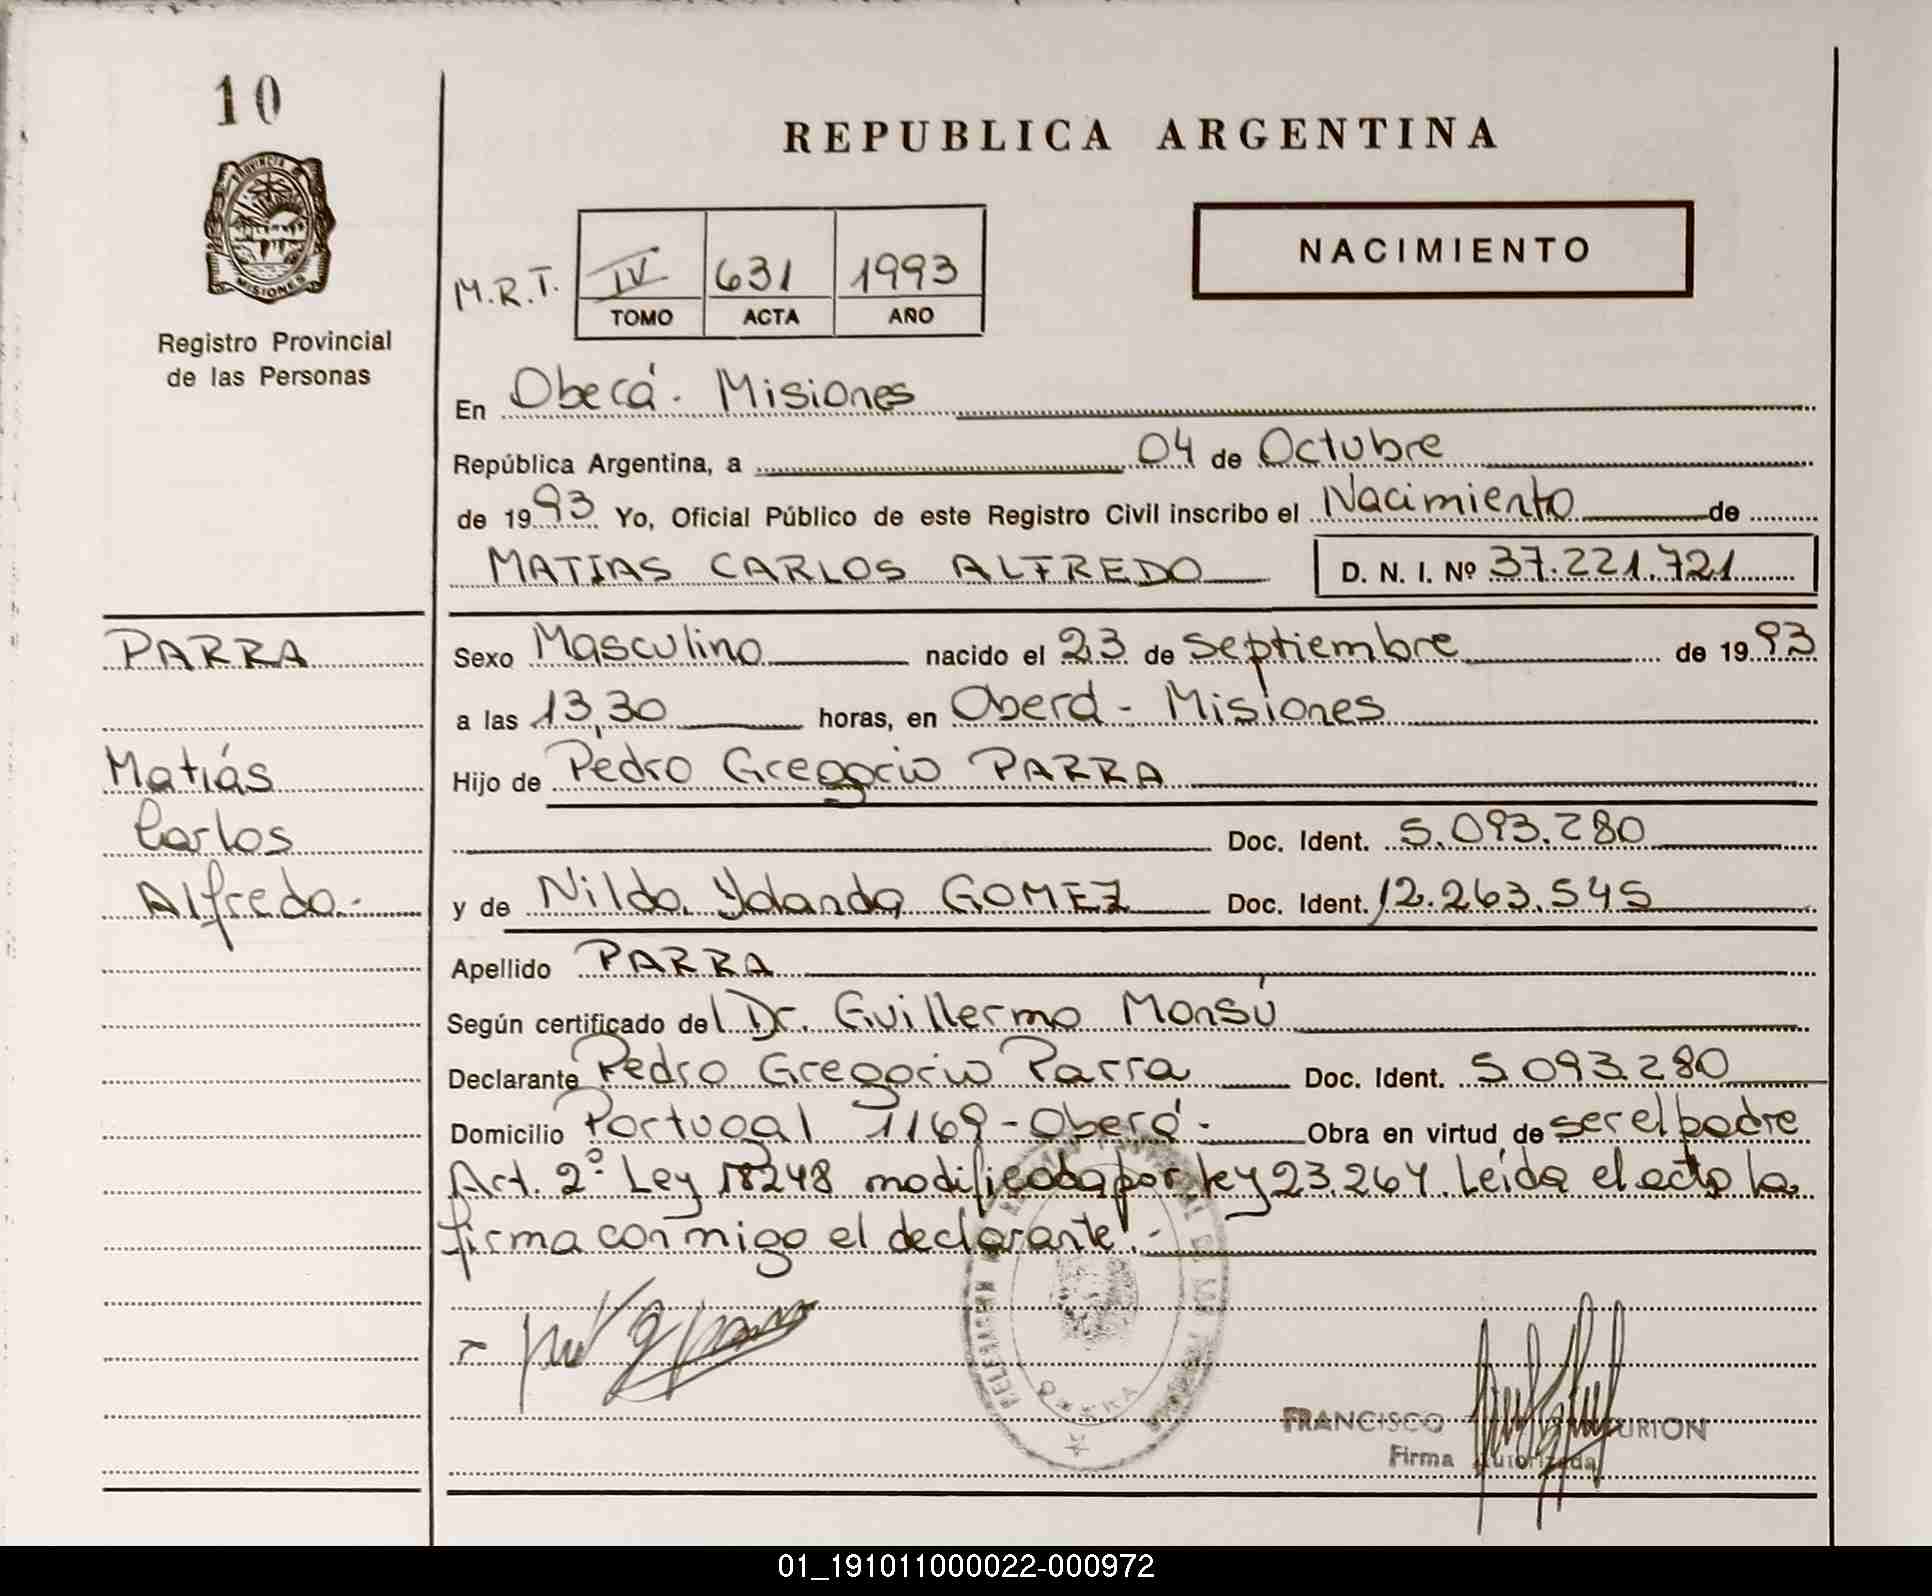 10
PROVINCIA
MISIONES
Registro Provincial
de las Personas
REPUBLICA ARGENTINA
NACIMIENTO
M.R.T.
IV 631 1993
TOMO ACTA AÑO
En Oberá - Misiones
República Argentina, a 04 de Octubre
de 1993 Yo, Oficial Público de este Registro Civil inscribo el Nacimiento de
MATIAS CARLOS ALFREDO D. N. I. Nº 37.221.721
PARRA
Matiás
Carlos
Alfredo.-
Sexo Masculino nacido el 23 de Septiembre de 1993
a las 13,30 horas, en Oberá - Misiones
Hijo de Pedro Gregorio PARRA
Doc. Ident. 5.093.280
y de Nilda Yolanda GOMEZ Doc. Ident. 12.263.545
Apellido PARRA
Según certificado del Dr. Guillermo Monsú
Declarante Pedro Gregorio Parra Doc. Ident. 5.093.280
Domicilio Portugal 1169 - Oberá - Obra en virtud de ser el padre
Art. 2º Ley 18248 modificada por ley 23.264. Leída el acta la
firma conmigo el declarante.-
OBERA
FRANCISCO URION
Firma Autorizada
01_191011000022-000972